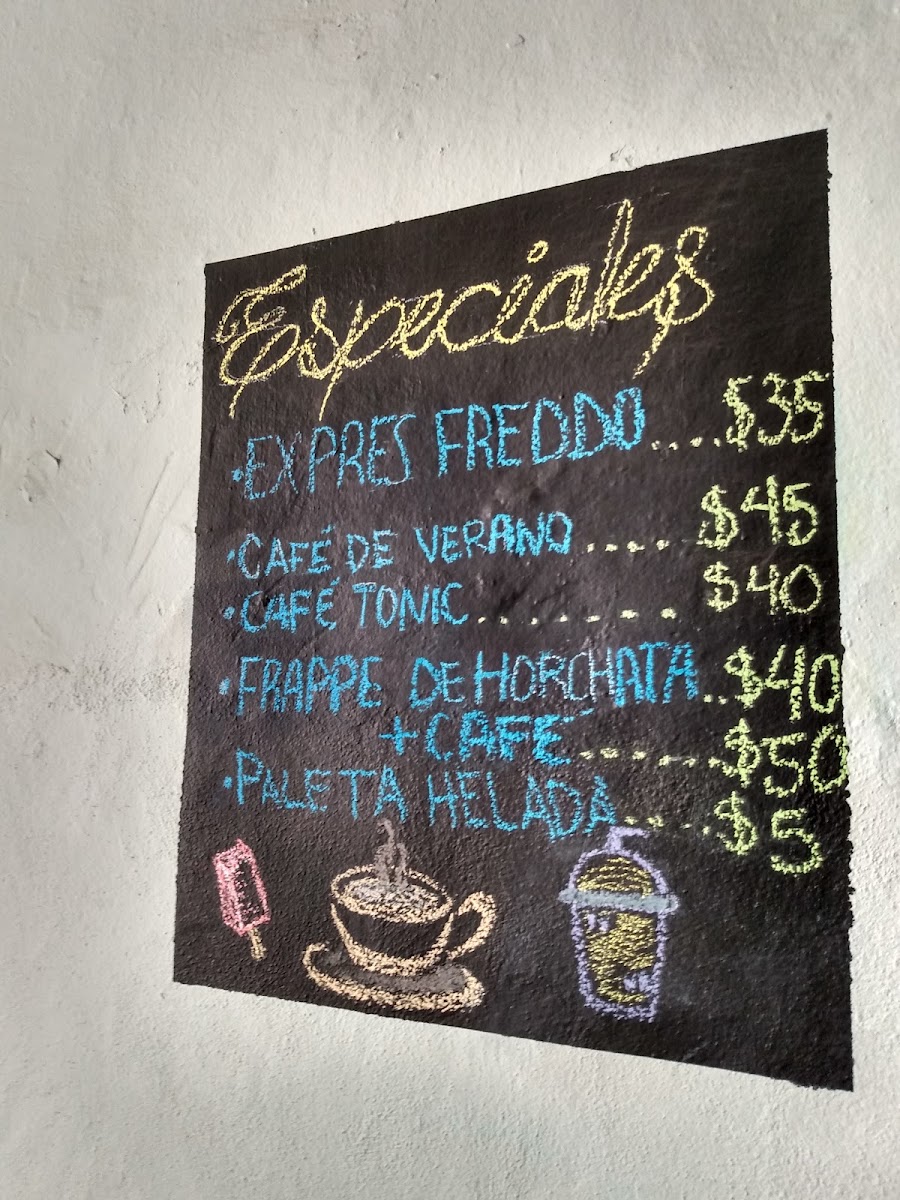 Especiales
·EXPRES FREDDO....$35
·CAFÉ DE VERANO.....$45
·CAFÉ TONIC........$40
·FRAPPE DE HORCHATA..$40
+CAFE.......$50
·PALETA HELADA....$5